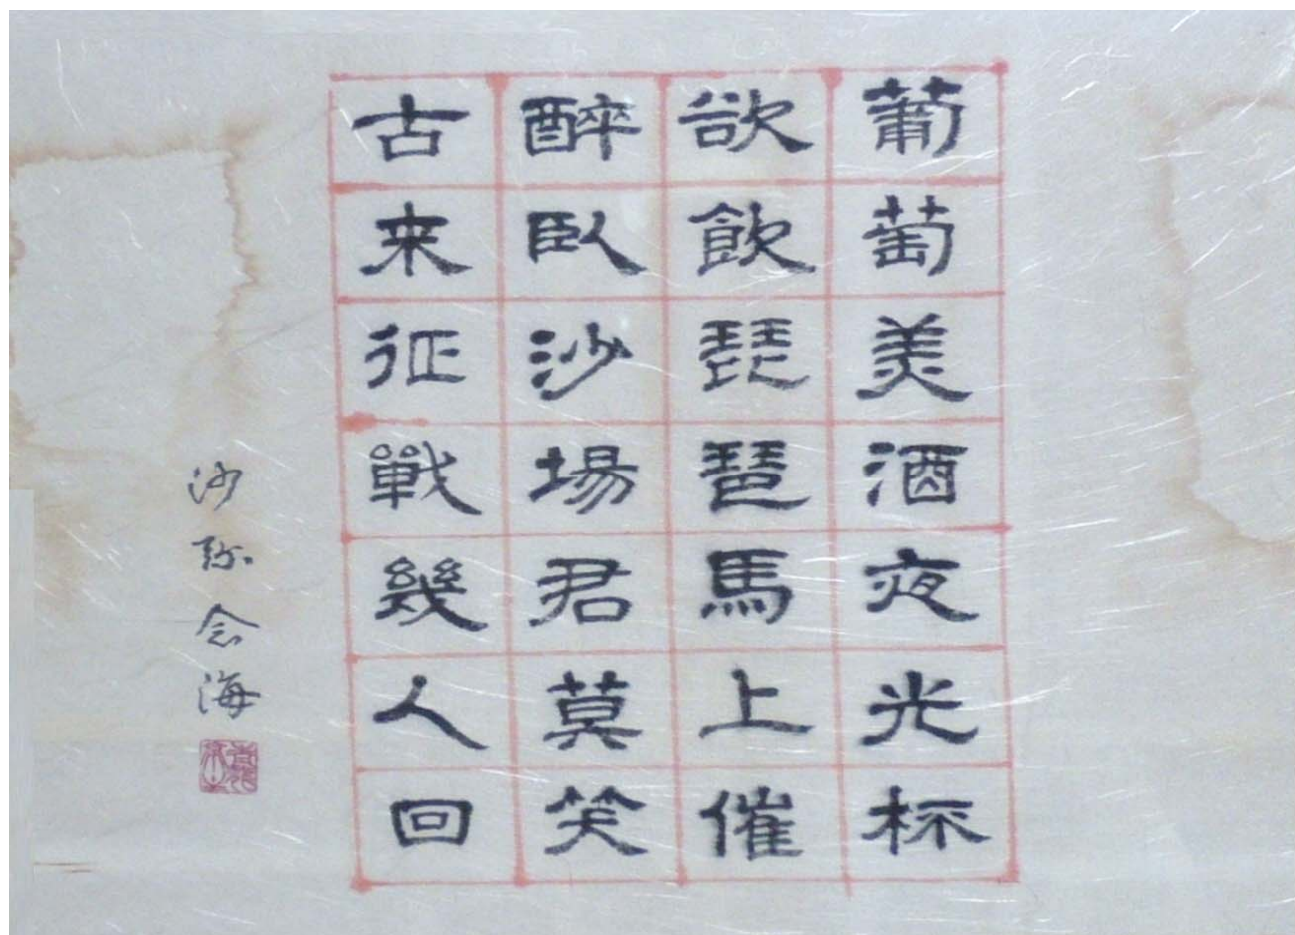 葡萄美酒夜光杯
欲飲琵琶馬上催
醉臥沙場君莫笑
古来征戰幾人回
沙弥念海